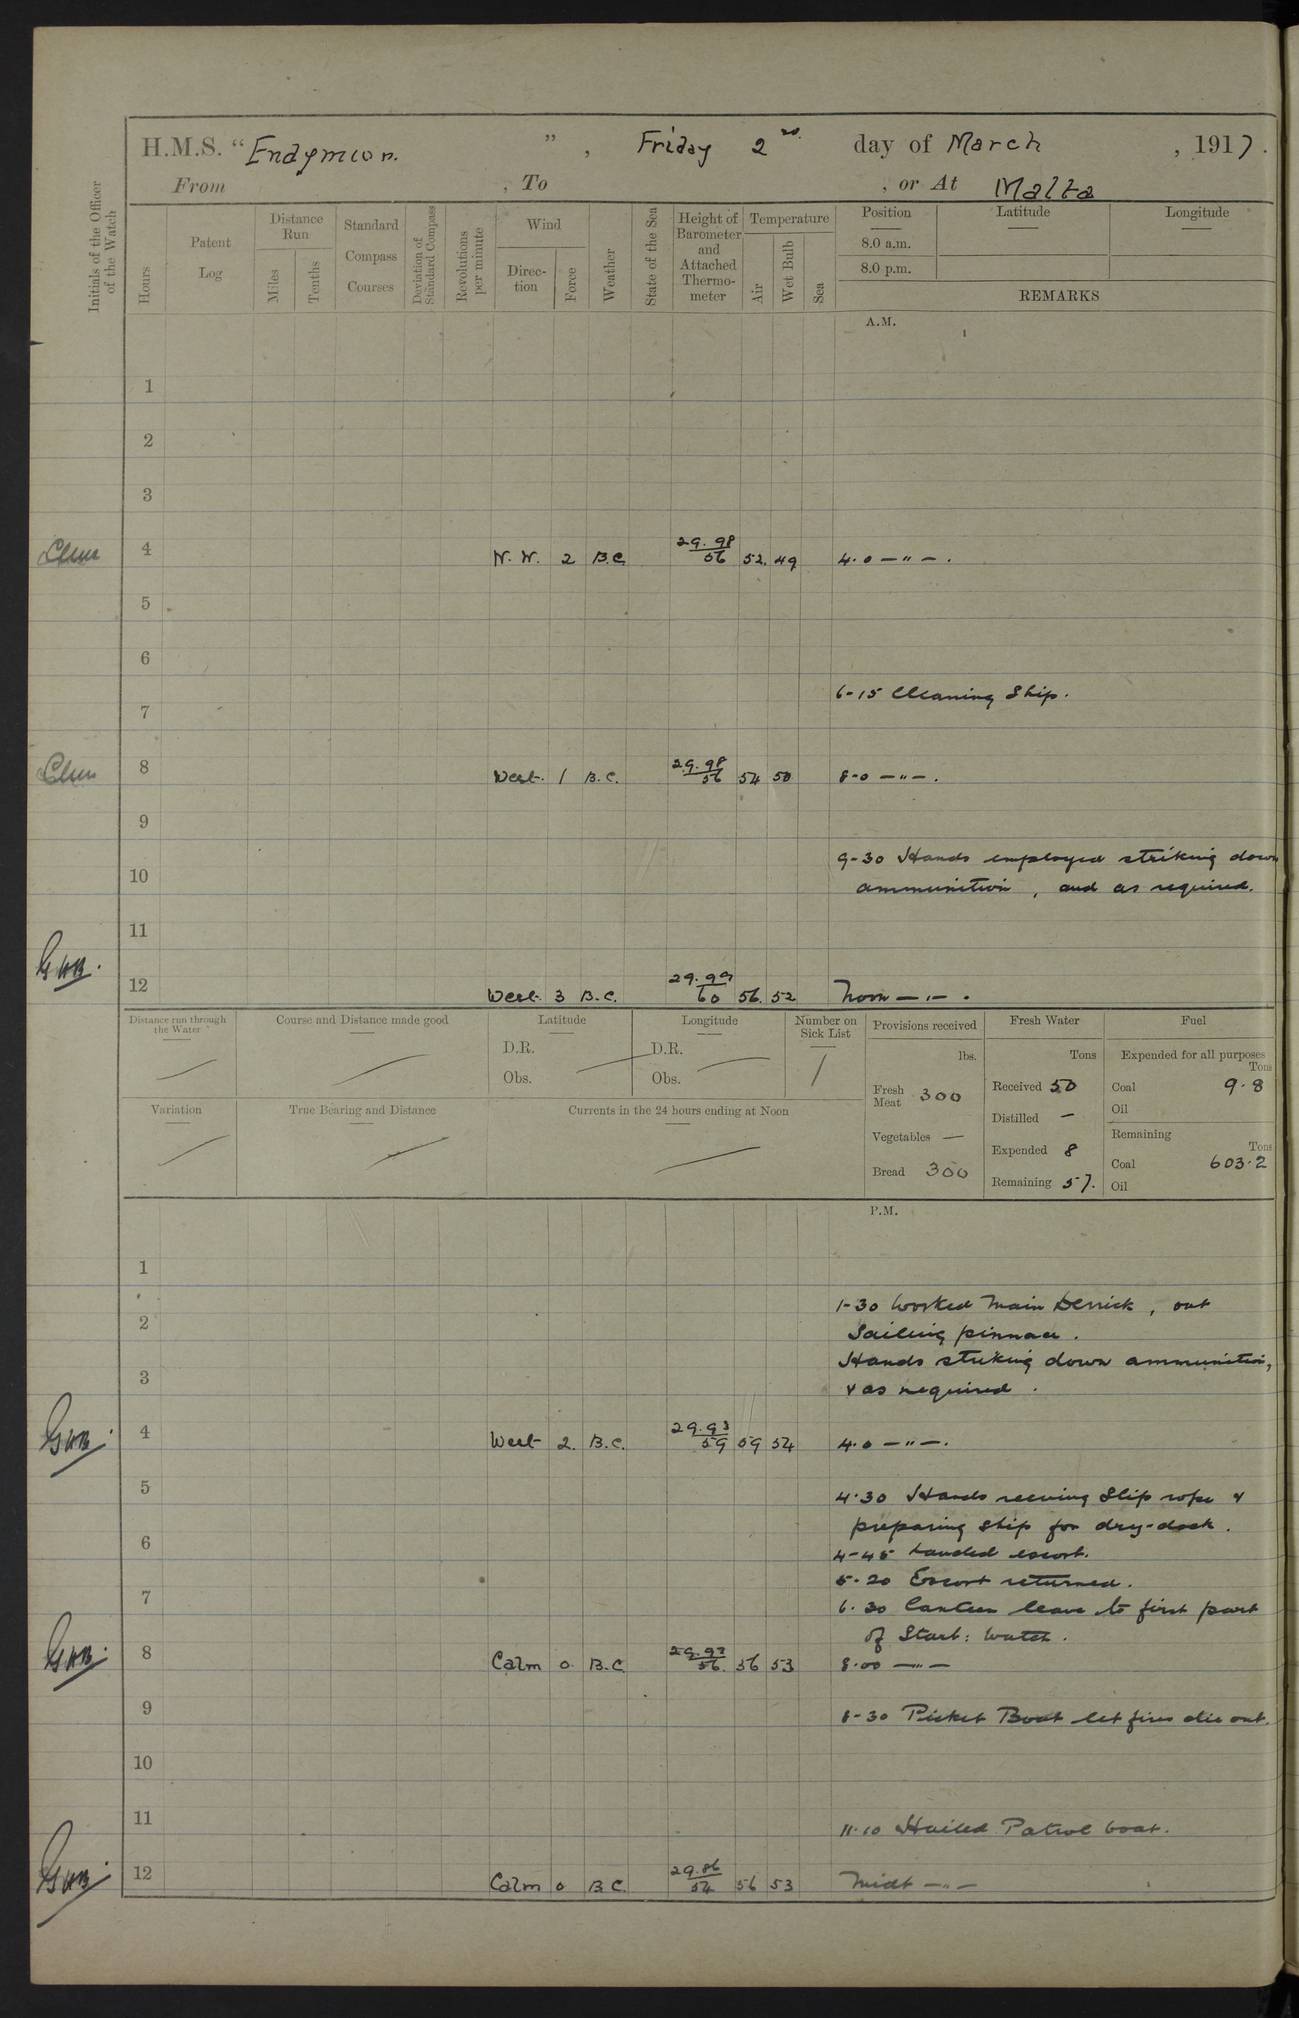 H.M.S. “Endymion.”, Friday 2nd. day of March, 1917.
From , To , or At Malta
Initials of the Officer of the Watch
Hours
Patent Log
Distance Run
Miles
Tenths
Standard Compass Courses
Deviation of Standard Compass
Revolutions per minute
Wind
Direction
Force
Weather
State of the Sea
Height of Barometer and Attached Thermometer
Temperature
Air
Wet Bulb
Sea
Position Latitude Longitude
8.0 a.m.
8.0 p.m.
REMARKS
A.M.
1
2
3
4 N. W. 2 B.C. 29.98/56 52. 49 4.0 — " — .
5
6
6-15 Cleaning Ship.
7
8 West. 1 B.C. 29.98/56 54 50 8-0 — " — .
9
9-30 Hands employed striking down
10
ammunition, and as required.
11
G W B.
12 West. 3 B.C. 29.99/60 56. 52 Noon — " — .
Distance run through the Water
Course and Distance made good
Latitude
D.R.
Obs.
Longitude
D.R.
Obs.
Number on Sick List
Provisions received
lbs.
Fresh Meat 300
Vegetables —
Bread 300
Fresh Water
Tons
Received 50
Distilled —
Expended 8
Remaining 57.
Fuel
Expended for all purposes
Tons
Coal 9.8
Oil
Remaining
Tons
Coal 603.2
Oil
Variation
True Bearing and Distance
Currents in the 24 hours ending at Noon
P.M.
1
1-30 Worked Main Derrick, out
2
Sailing pinnace.
Hands striking down ammunition,
3
& as required.
G W B. 4 West 2. B.C. 29.93/59 59 54 4.0 — " — .
5
4.30 Hands reeving Slip rope &
preparing ship for dry-dock.
6
4-45 Landed escort.
5.20 Escort returned.
7
6.30 Canteen leave to first part
of Starb: Watch.
G W B. 8 Calm 0. B.C. 56. 56 53 8.00 — " —
9
8-30 Picket Boat let fires die out.
10
11
11.10 Hailed Patrol boat.
G W B. 12 Calm 0 B.C. 29.86/54 56 53 Midt — " —